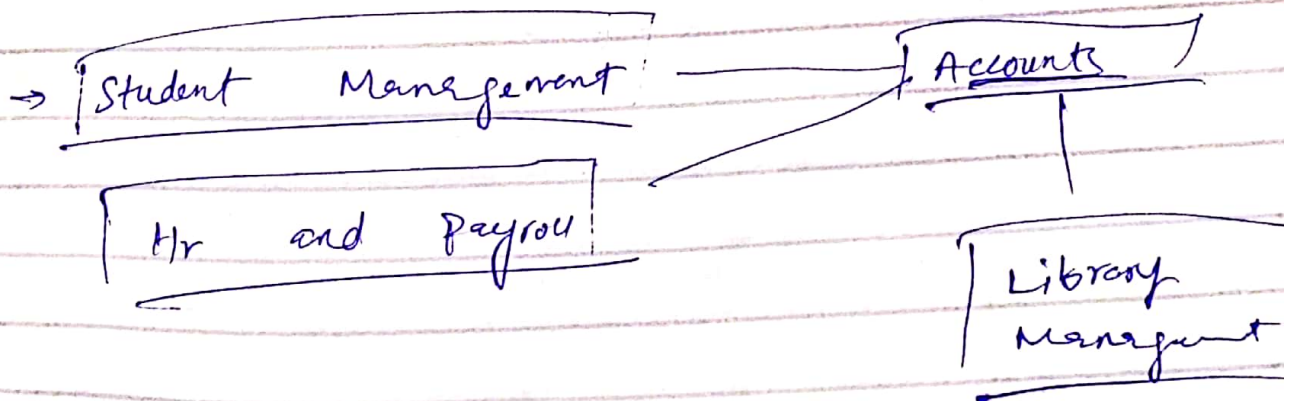 → Student Management
Accounts
Hr and Payroll
Library
Managment